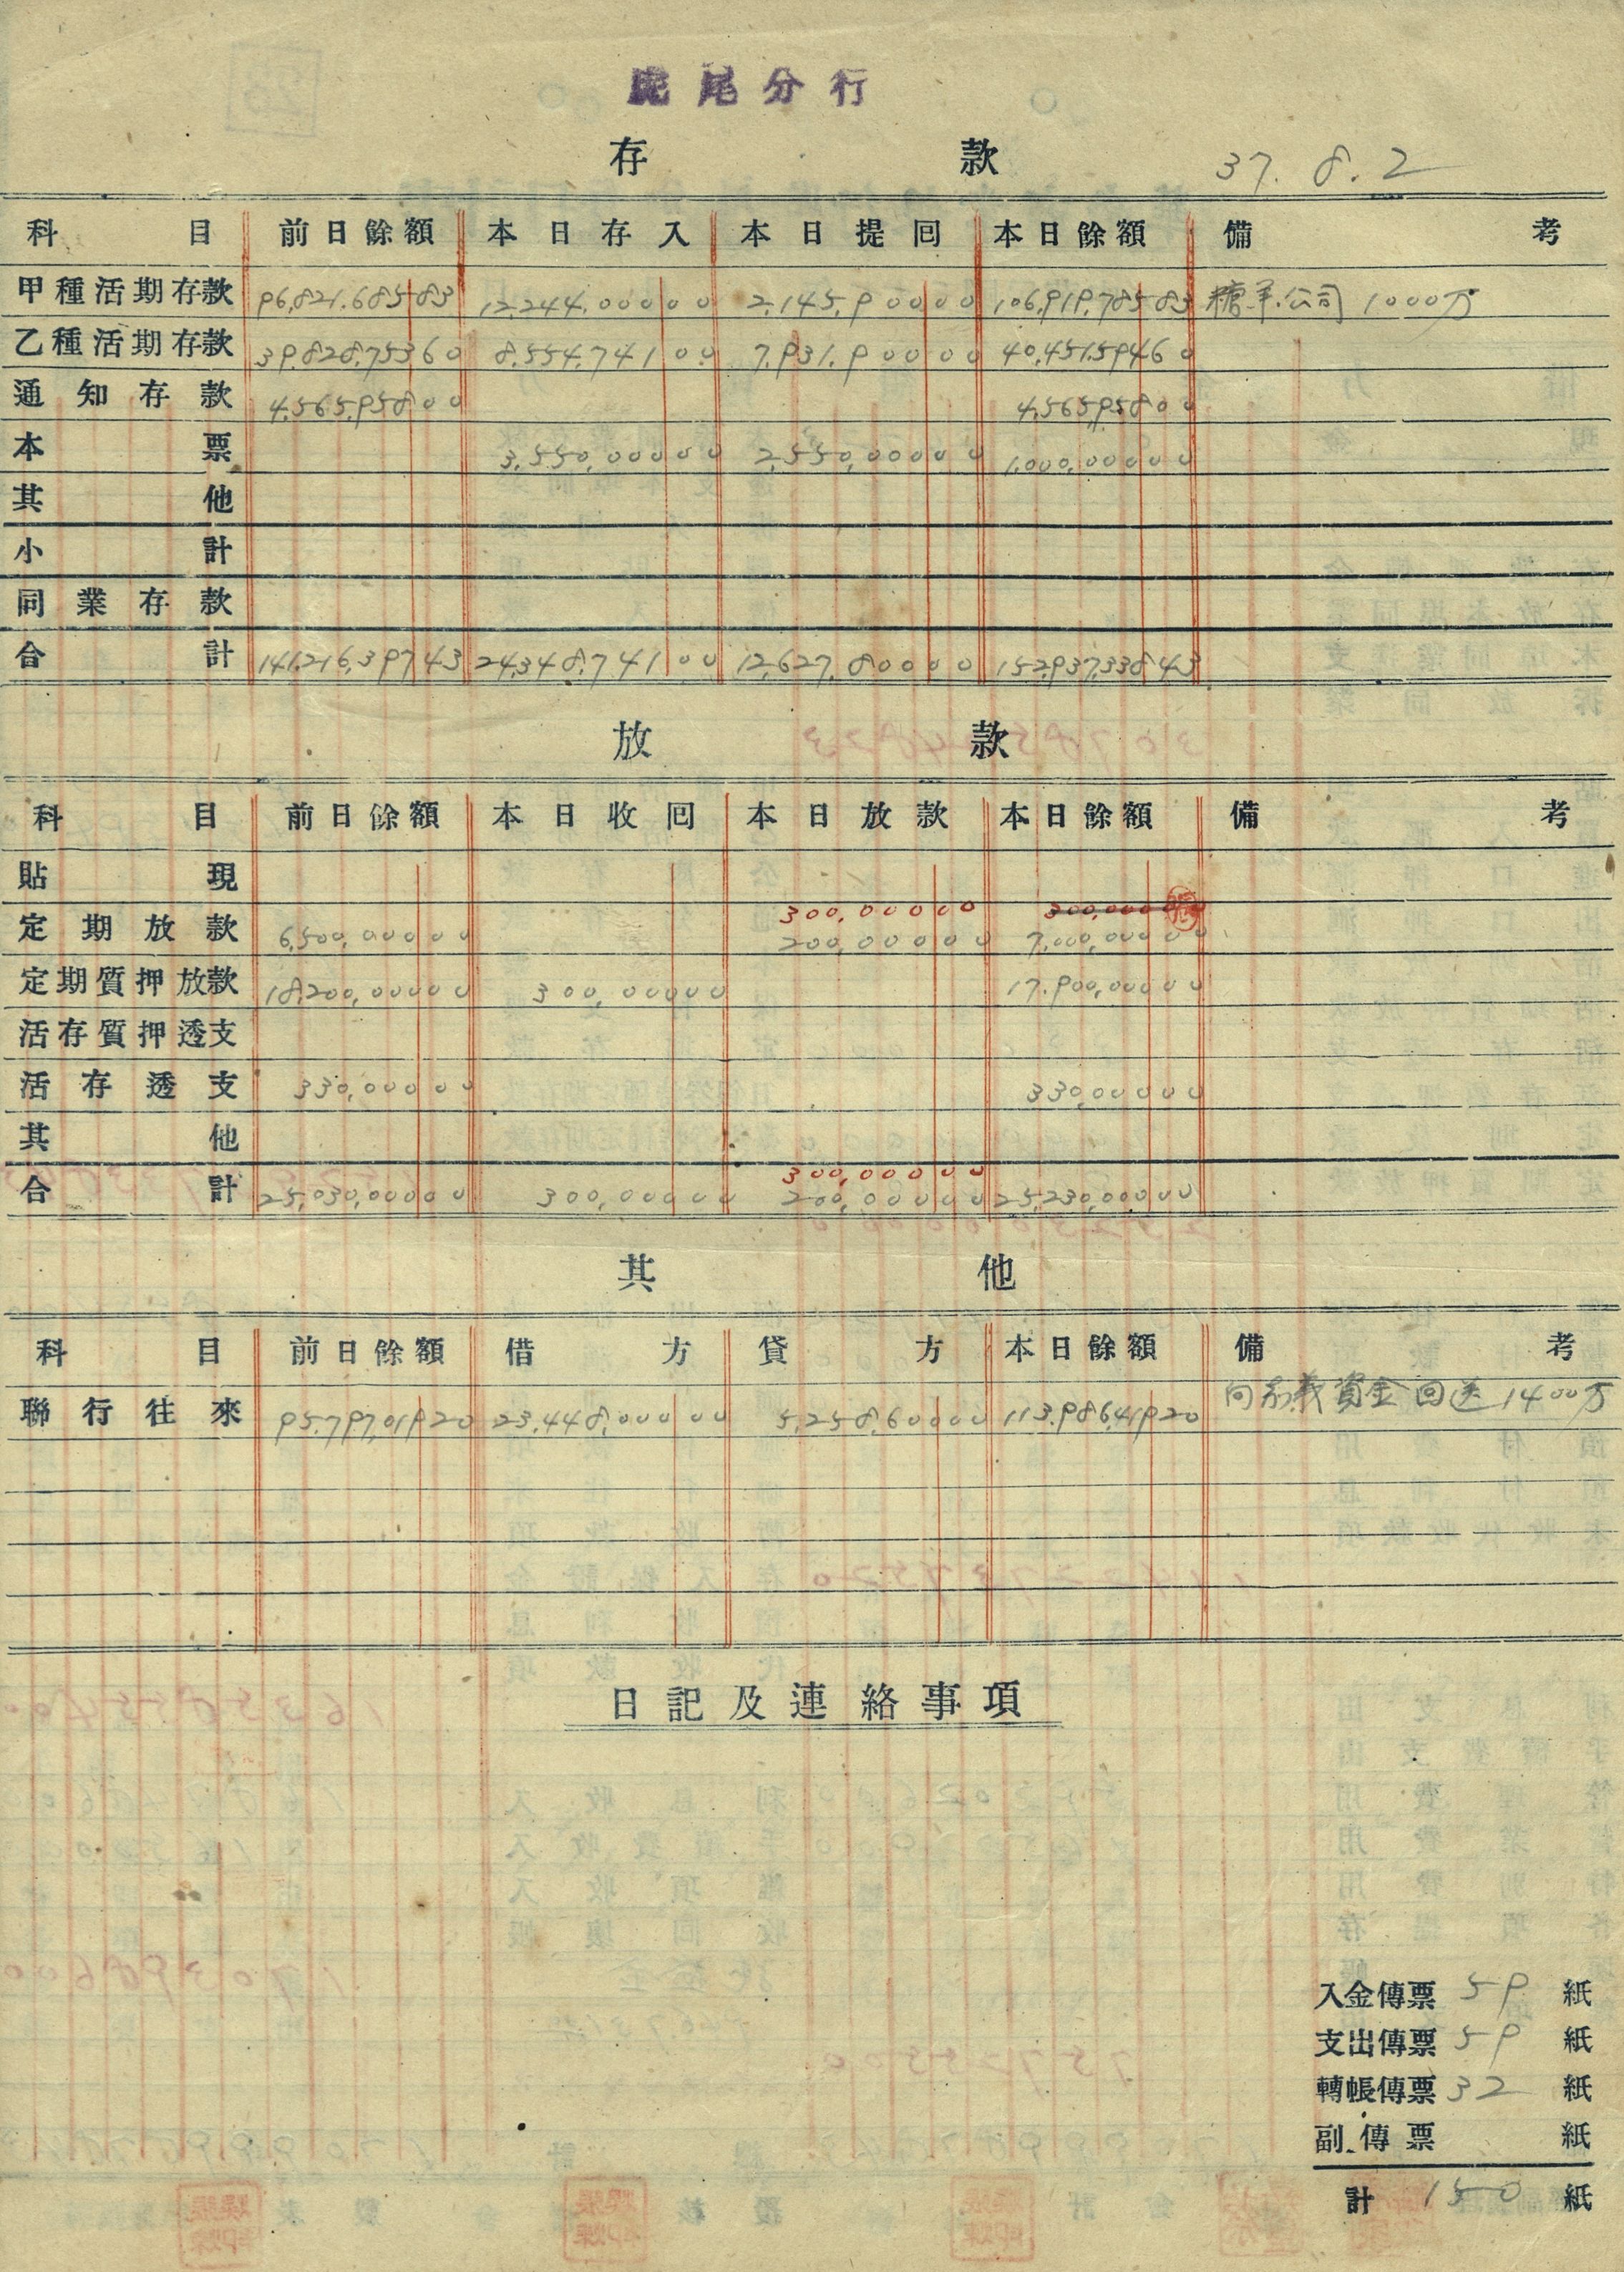 虎尾分行
存款 37.8.2
科目 前日餘額 本日存入 本日提回 本日餘額 備考
甲種活期存款 96,821,685 83 12,244,000 00 2,145,900 00 106,919,785 83 糖業公司 1000万
乙種活期存款 39,828,753 60 8,554,741 00 7,931,900 00 40,451,594 60
通知存款 4,565,958 00 4,565,958 00
本票 3,550,000 00 2,550,000 00 1,000,000 00
其他
小計
同業存款
合計 141,216,397 43 24,348,741 00 12,627,800 00 152,937,338 43
放款
科目 前日餘額 本日收回 本日放款 本日餘額 備考
貼現
300,000 00 300,000
定期放款 6,500,000 00 200,000 00 7,000,000 00
定期質押放款 18,200,000 00 300,000 00 17,900,000 00
活存質押透支
活存透支 330,000 00 330,000 00
其他
300,000 00
合計 25,030,000 00 300,000 00 200,000 00 25,230,000 00
其他
科目 前日餘額 借方 貸方 本日餘額 備考
聯行往來 95,797,019 20 23,448,000 00 5,258,600 00 113,986,419 20 向嘉義資金回送 1400万
日記及連絡事項
入金傳票 59 紙
支出傳票 59 紙
轉帳傳票 32 紙
副傳票 紙
計 150 紙